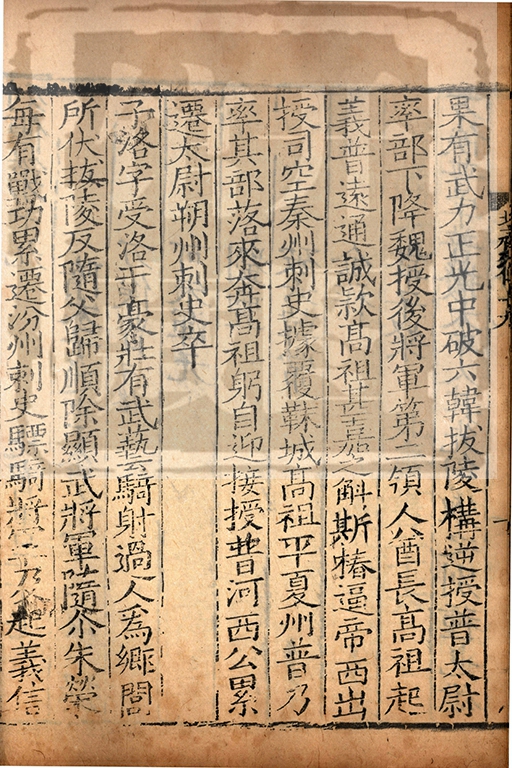 果有武力正光中破六韓拔陵構逆授普太尉
率部下降魏授後將軍第二領人酋長高祖起
義普遠通誠款高祖甚嘉之斛斯椿逼帝西出
授司空秦州刺史據覆靺城高祖平夏州普乃
率其部落來奔高祖躬自迎接授普河西公累
遷太尉朔州刺史卒
子洛字受洛干豪壯有武藝騎射過人為鄉閭
所伏拔陵反隨父歸順除顯武將軍隨尒朱榮
每有戰功累遷汾州刺史驃騎將起義信